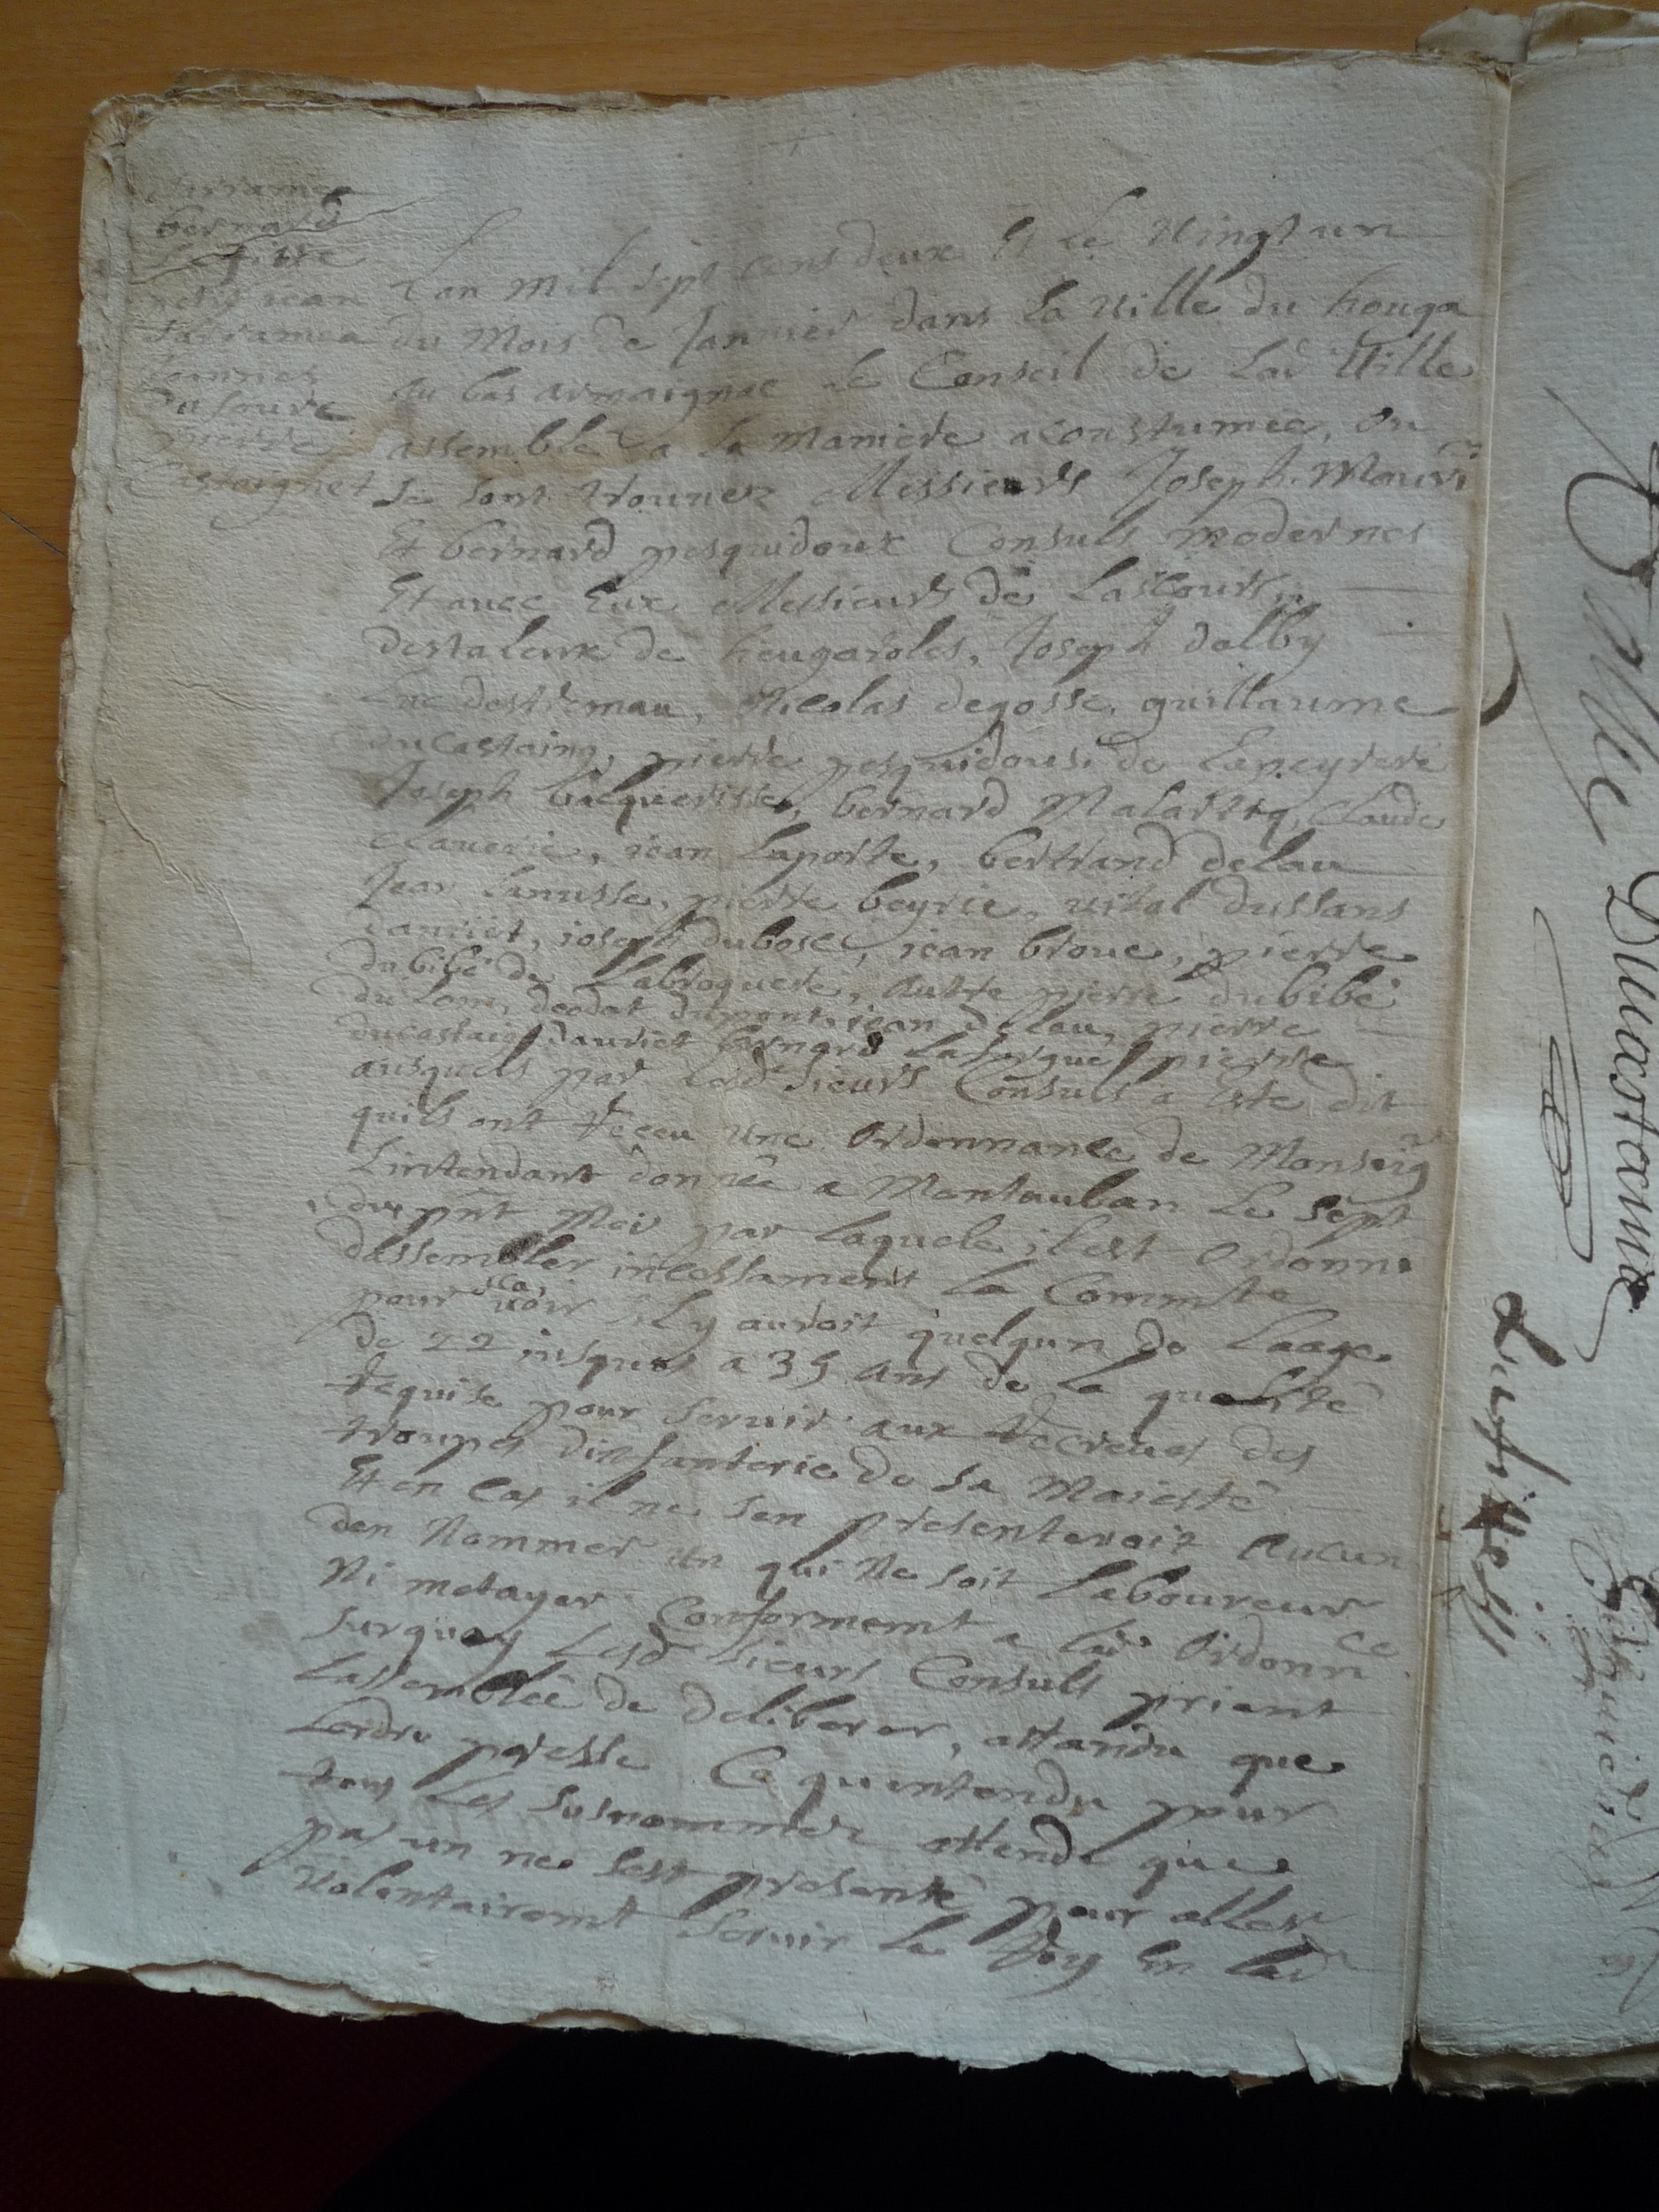 darramea
bernard
Lafitte
petit jean
darramea
Jeannes
dufourc
pierre
Castaignet
Lan mil sept cens deux Et Le Vingt un
du Mois de Janvier dans La Ville du houga
au bas armaignac Le Conseil de Lad Ville
assemblé a la maniere acoustumée, Ou
se sont trouvez Messieurs Joseph Mauri
Et bernard pesquidoux Consuls modernes
Et avec Eux Messieurs de Lascours,
destaleux de heugaroles, Joseph dalby
Luc destremau, Nicolas degosse, guillaume
ducastaing, pierre pesquidous, de Lapeyrere
Joseph bacquerisse, bernard Malartig, Claude
Claverie, jean Laporte, bertrand delau
Jean Lanusse, pierre beyrie, vital dussans
dauriet, joseph dubosc, jean broue, pierre
dubibé de Labroquere, Autre pierre dubibé
du Lom, deodat dupont, jean delau, pierre
ducastaig dauriet bernard Lafargue pierre
ausquels par Lesd Sieurs Consuls a Este dit
quils ont receu une Ordonnance de Monseigr
Lintendant donnée a Montauban Le sept
du pnt Moi par laquele il est Ordonné
dassembler incessament La Commte
pour sca voir Sil y auroit quelqun de Laage
de 22 jusques a 35 Ans de la qualité
requise pour Servir aux recreues des
troupes dinfanterie de Sa Maiesté
Et en Cas il ne sen presenteroit Aucun
den Nommer Un qui Ne soit Laboureur
Ni metayer Conformemt a lad Ordonnce
Surquoy Lesd Sieurs Consuls prient
Lassemblée de deliberer, attandu que
Lordre presse Ce quentendu pour
tous Les Susnommez attendu que
pas un ne sest presenté pour aller
Volontairemt Servir Le Roy En lad
Ducastaing
Lafitte